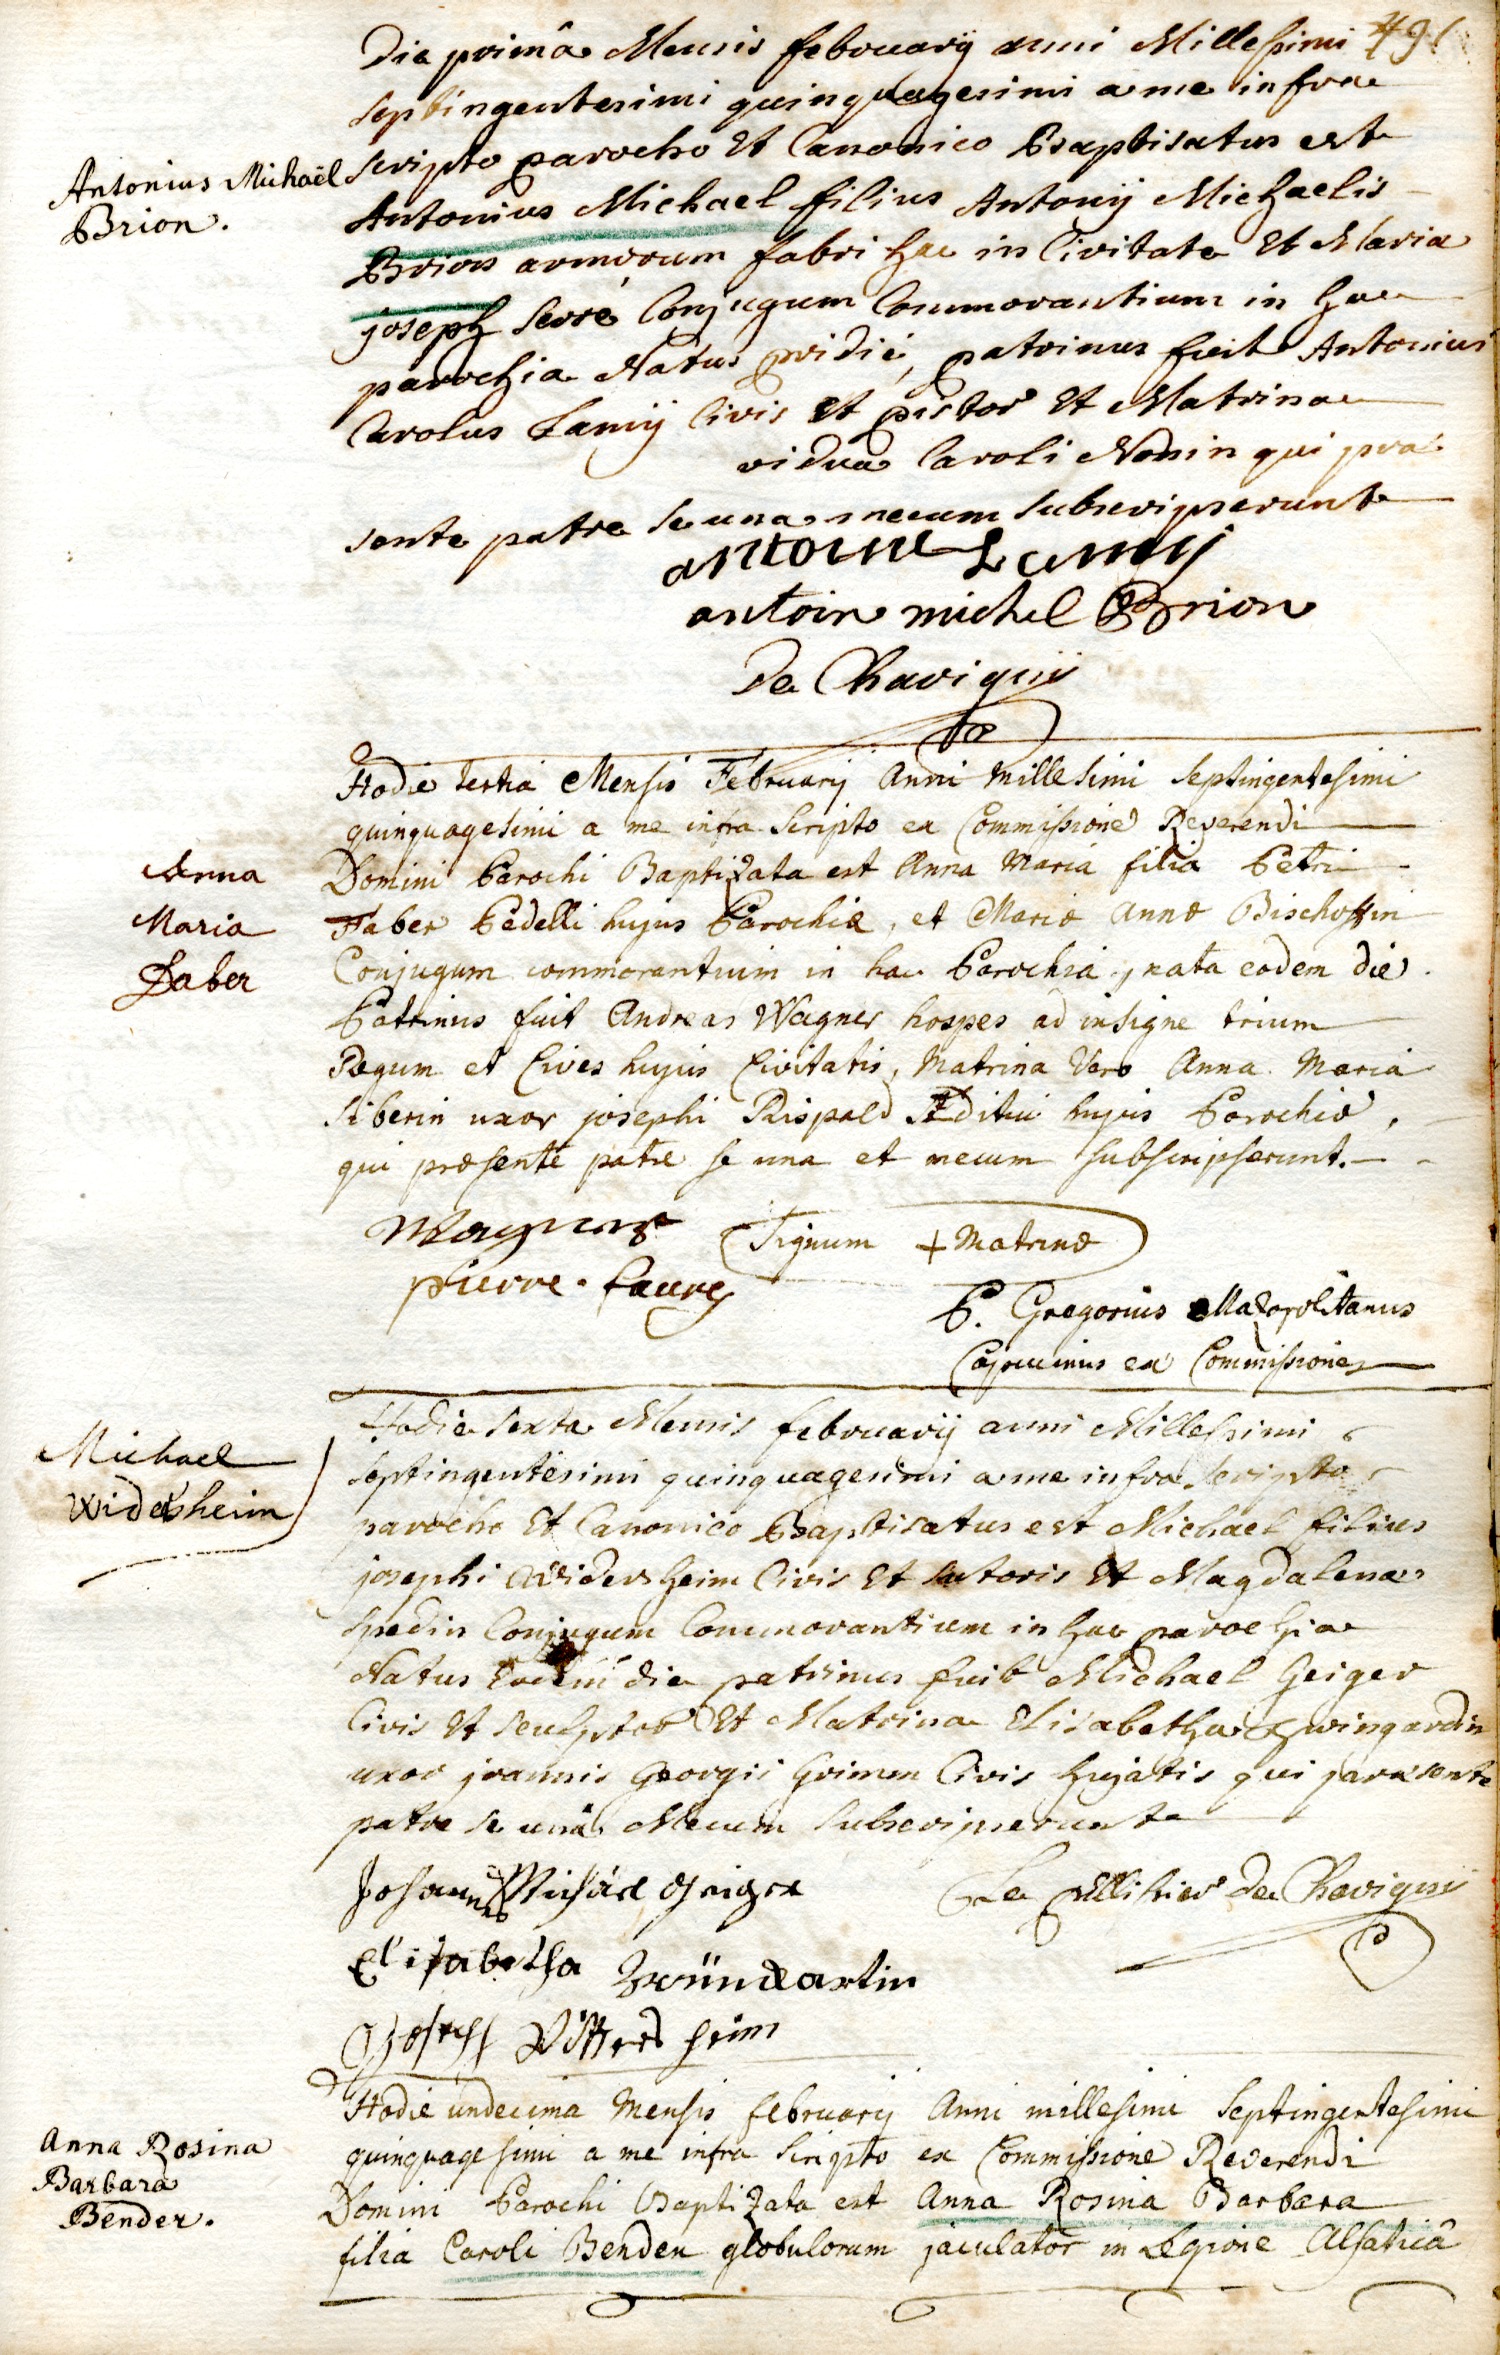 491
Die primâ Mensis februarij anni Millesimi
septingentesimi quinquagesimi a me infra
Antonius Michaël
Brion.
scripto parocho Et Canonico Baptisatus est
Antonius Michael filius Antonij Michaelis
Brion armorum fabri hac in Civitate Et Maria
joseph Serré Conjugum Commorantium in hac
parochia Natus pridie, patrinus fuit Antonius
Carolus Lamij Civis Et pistor Et Matrina
vidua Caroli Nonin qui præ
sente patre se una mecum subscripserunt
antoine Lamij
antoine michel Brion
De Chavignÿ
Hodie tertia Mensis Februarij Anni millesimi septingentesimi
quinquagesimi a me infra scripto ex Commissione Reverendi
Anna
Maria
Faber
Domini Parochi Baptizata est Anna Maria filia Petri
Faber Pedelli hujus Parochiæ, et Mariæ Annæ Bischoffin
Conjugum commorantium in hac Parochia, nata eodem die.
Patrinus fuit Andreas Wagner hospes ad insigne trium
Regum et Cives hujus Civitatis, Matrina Vero Anna Maria
Siberin uxor josephi Rispald Æditui hujus Parochiæ,
qui præsente patre se una et mecum subscripserunt.
Wagner
Signum + Matrinæ
pierre faure
P. Gregorius Mazopolitanus
Capucinus ex Commissione
Michael
Widersheim
Hodie Sexta Mensis februarij anni Millesimi
septingentesimi quinquagesimi a me infra scripto
parocho Et Canonico Baptisatus est Michael filius
josephi Widersheim Civis Et sutoris Et Magdalena
Spedin Conjugum Commorantium in hac parochia
Natus Eodem die patrinus fuit Michael Geiger
Civis Et sculptor Et Matrina Elisabetha Zwingardin
uxor joannis Georgii Grimm Civis hujatis qui præsente
patre se unâ Mecum subscripserunt
Johannes Michael Geiger
Le Pellitier De Chavignÿ
Elisabetha Zwündartin
Joseph Vittersheim
Hodie undecima Mensis februarij Anni millesimi Septingentesimi
Anna Rosina
Barbara
Bender.
quinquagesimi a me infra scripto ex Commissione Reverendi
Domini Parochi Baptizata est Anna Rosina Barbara
filia Caroli Benden globulorum jaculator in Legione Alsaticâ